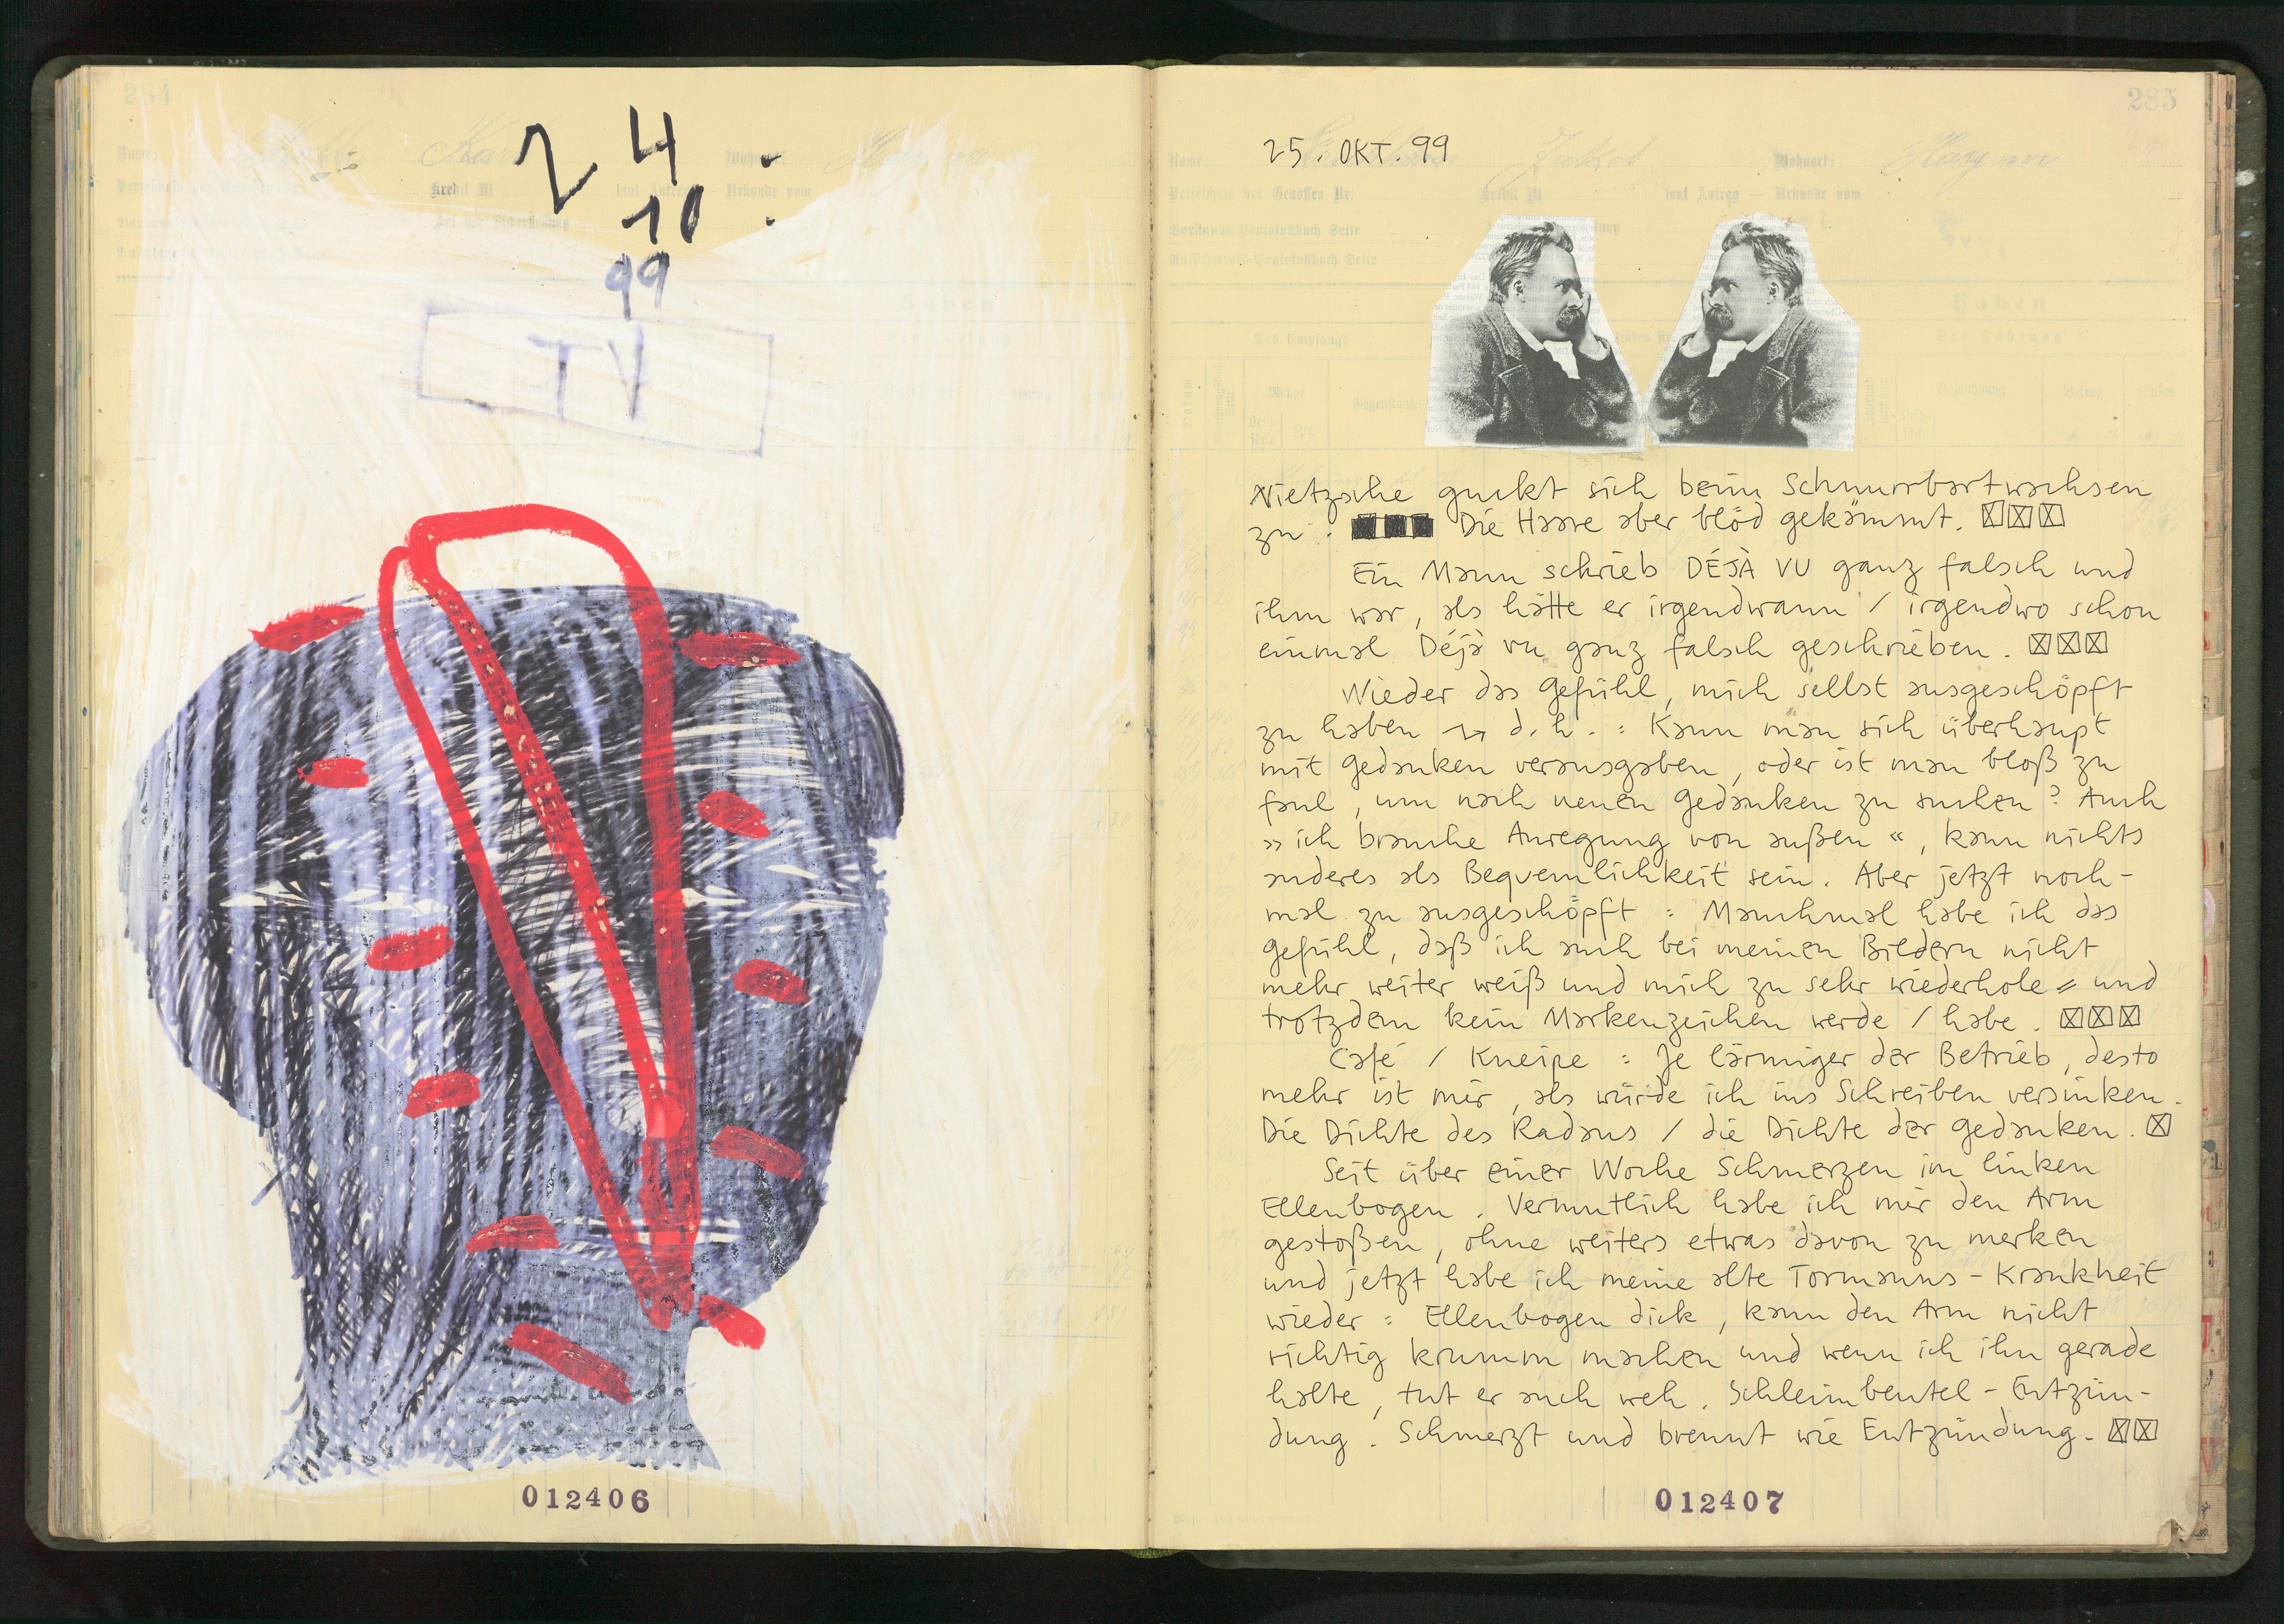 24
10
99
TV
012406
285
25. OKT. 99
Name: Jakob Wohnort:
Verzeichnis der Genossen Nr. Kredit M laut Antrag — Urkunde vom
Vorstands-Protokollbuch Seite
Aufsichtsrats-Protokollbuch Seite
Haben
Nietzsche guckt sich beim Schnurrbartwachsen
zu. Die Haare aber blöd gekämmt.
Ein Mann schrieb DÉJÀ VU ganz falsch und
ihm war, als hätte er irgendwann / irgendwo schon
einmal Déjà vu ganz falsch geschrieben.
Wieder das Gefühl, mich selbst ausgeschöpft
zu haben → d.h.: Kann man sich überhaupt
mit Gedanken verausgaben, oder ist man bloß zu
faul, um nach neuen Gedanken zu suchen? Auch
»ich brauche Anregung von außen«, kann nichts
anderes als Bequemlichkeit sein. Aber jetzt noch-
mal zu ausgeschöpft: Manchmal habe ich das
Gefühl, daß ich auch bei meinen Bildern nicht
mehr weiter weiß und mich zu sehr wiederhole = und
trotzdem kein Markenzeichen werde / habe.
Café / Kneipe: Je lärmiger der Betrieb, desto
mehr ist mir, als würde ich ins Schreiben versinken.
Die Dichte des Radaus / die Dichte der Gedanken.
Seit über einer Woche Schmerzen im linken
Ellenbogen. Vermutlich habe ich mir den Arm
gestoßen, ohne weiters etwas davon zu merken
und jetzt habe ich meine alte Tormanns-Krankheit
wieder: Ellenbogen dick, kann den Arm nicht
richtig krumm machen und wenn ich ihn gerade
halte, tut er auch weh. Schleimbeutel-Entzün-
dung. Schmerzt und brennt wie Entzündung.
012407